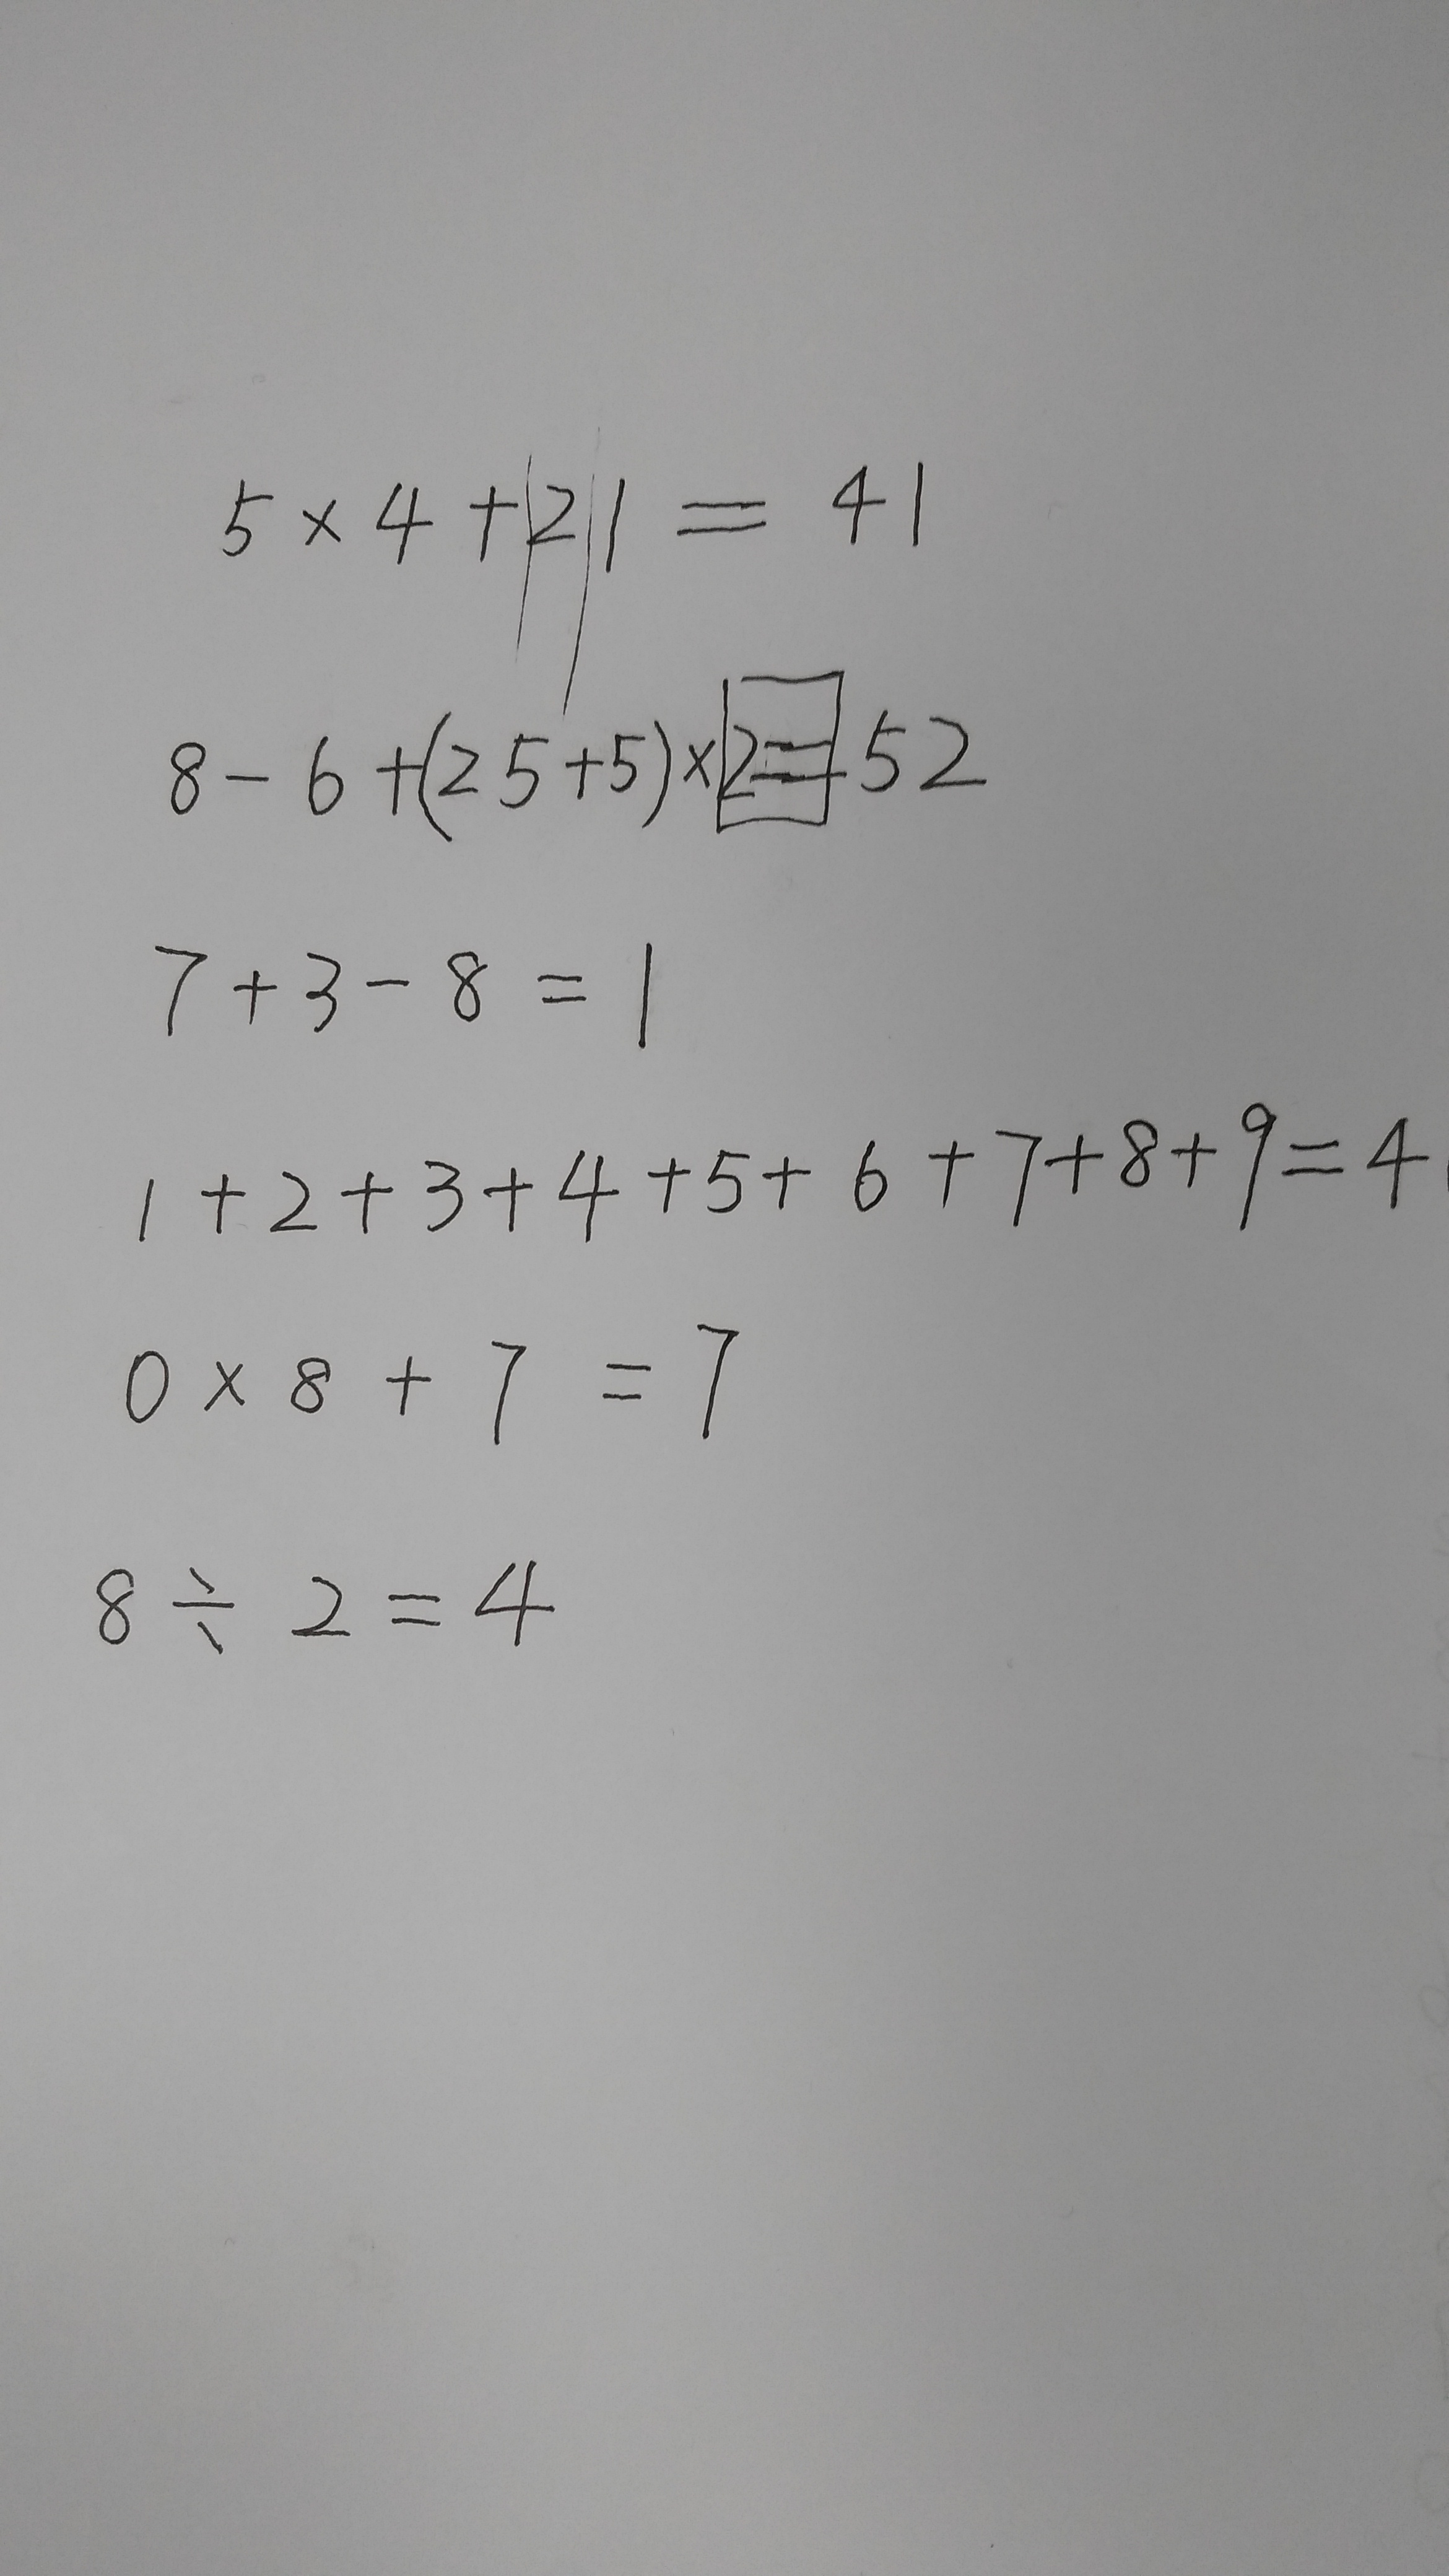 5×4+21=41
8-6+(25+5)×2=52
7+3-8=1
1+2+3+4+5+6+7+8+9=4
0×8+7=7
8÷2=4